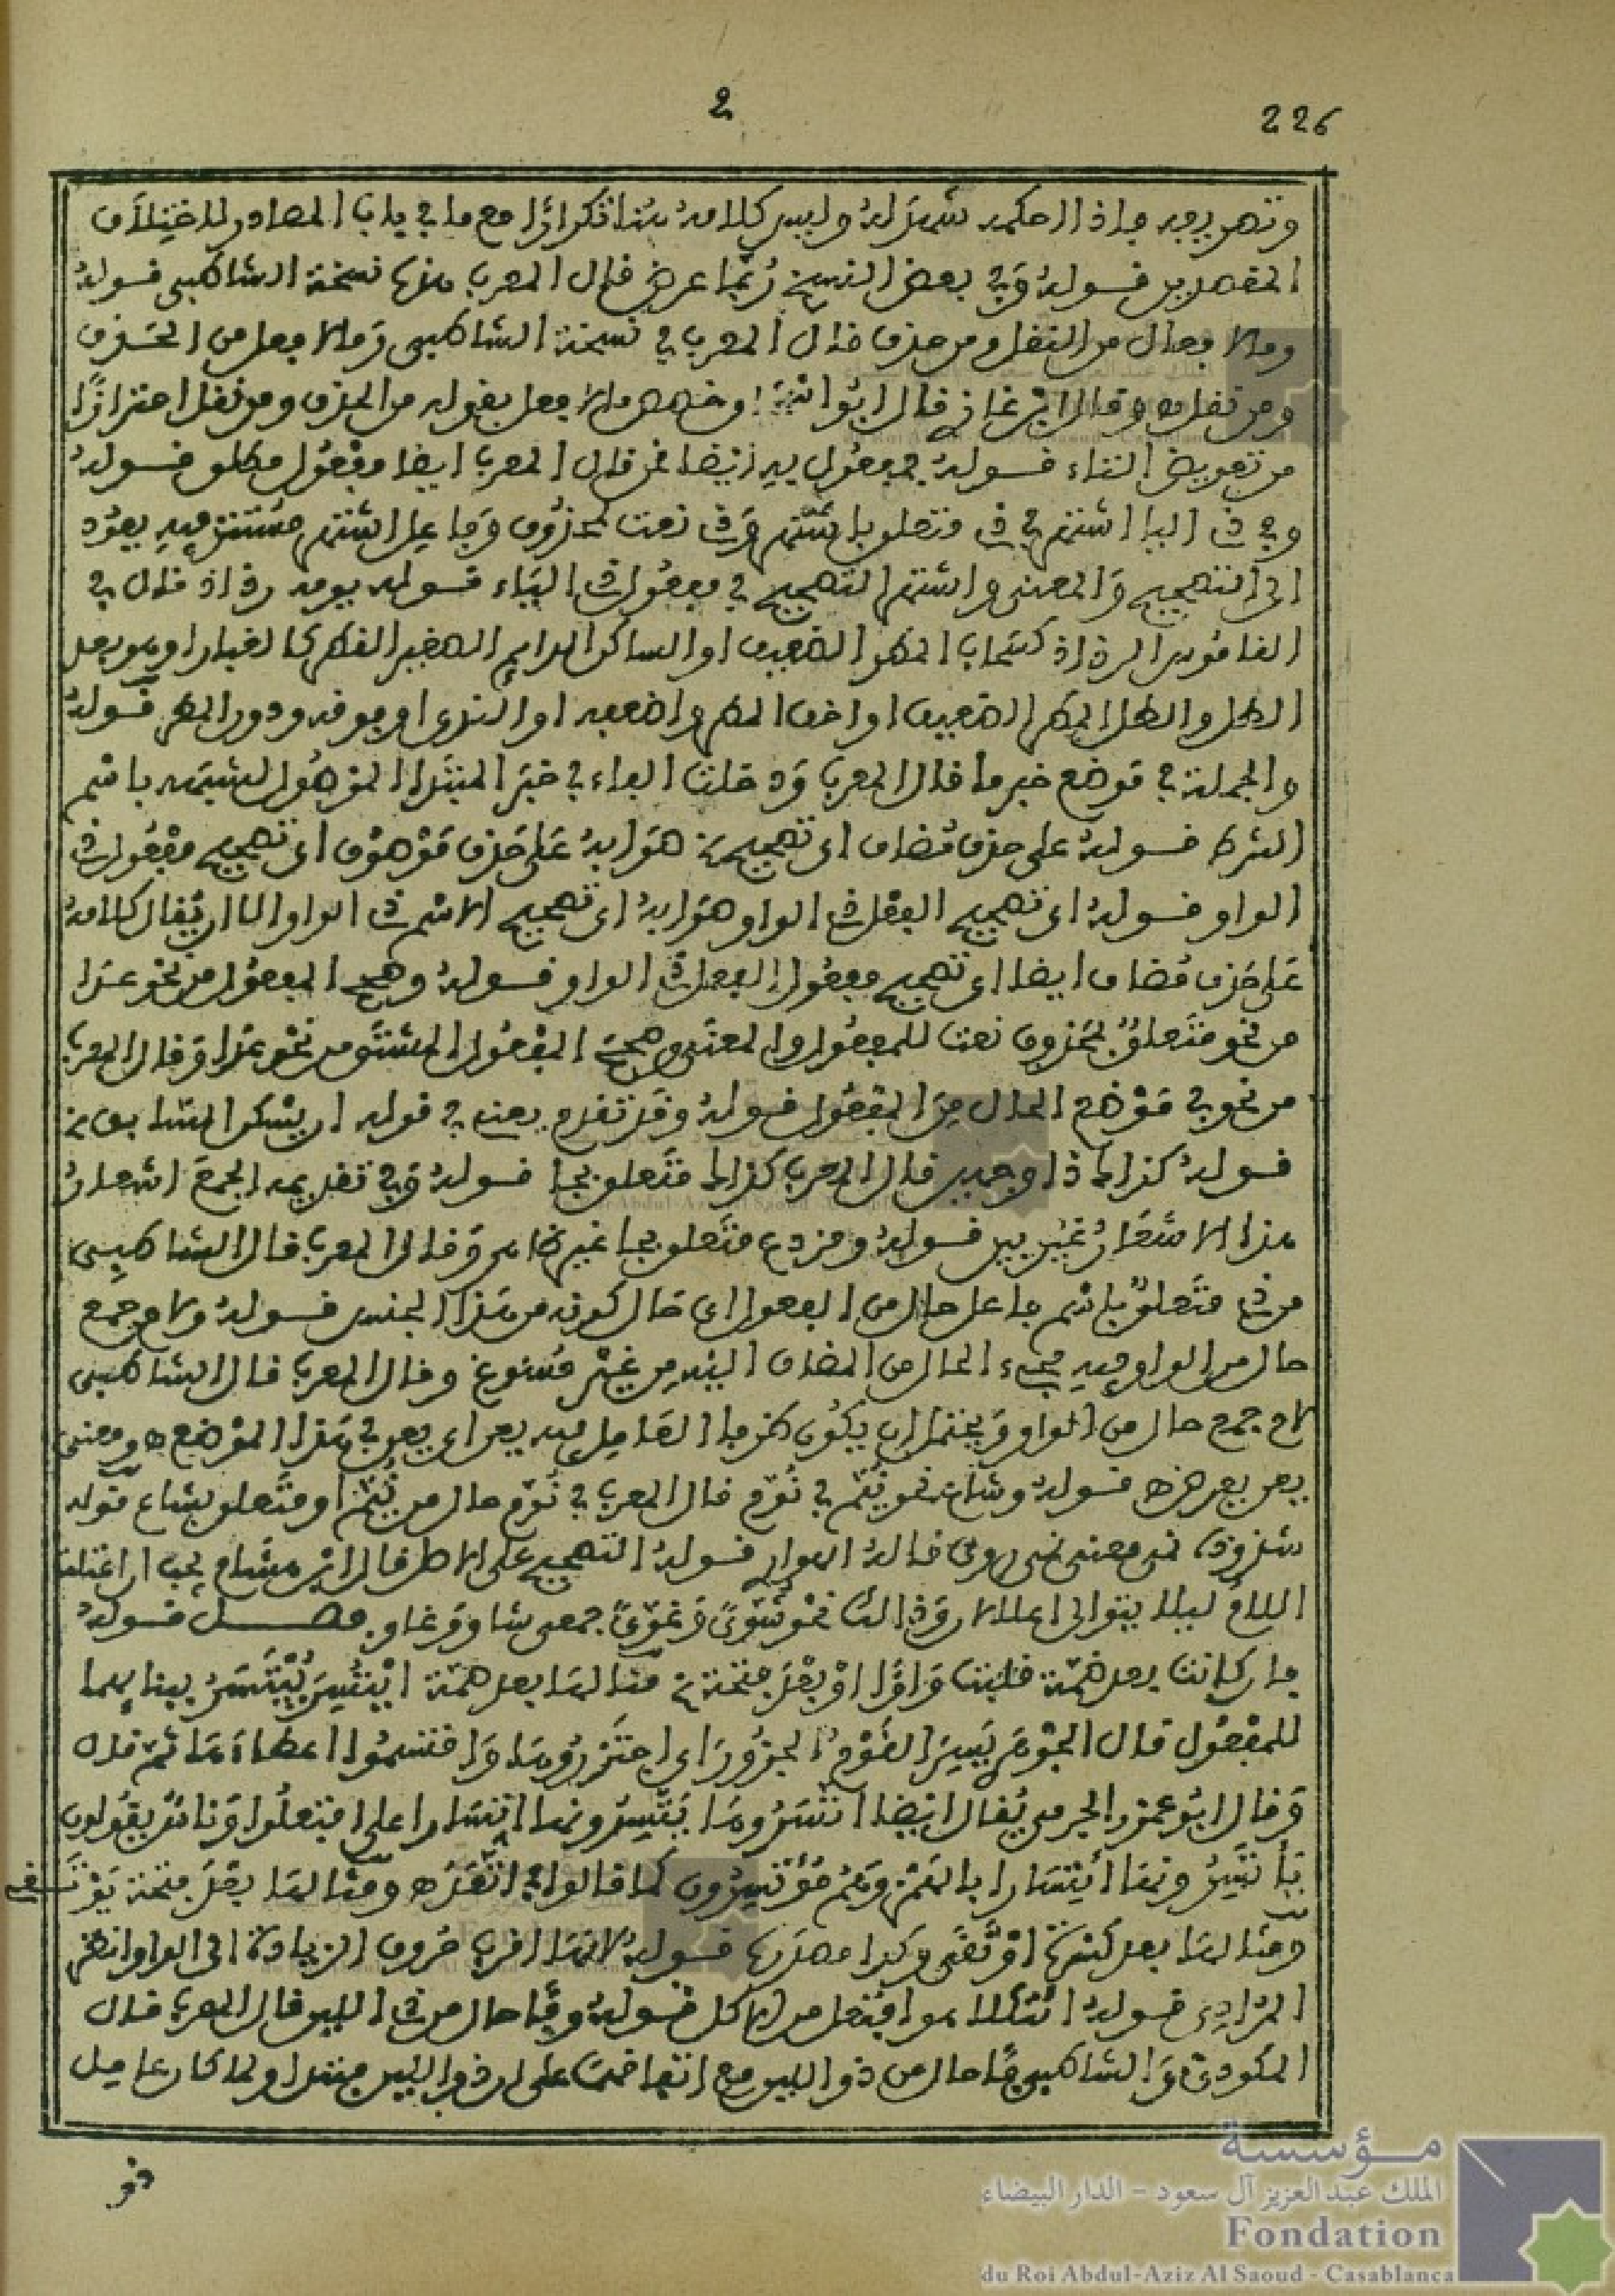 2
226
المقصدين قوله وفي بعض النسخ ربما عرض قال المعرب منها نسخة الشاطبي قوله
وما لإفعال من النقل ومن حذف قال المعرب في نسخة الشاطبي وما لإفعل من الحذف
ومن نقل وقال ابن غازي قال ابو اسحق وخصص ما لإفعل بقوله من الحذف ومن نقل احترازا
من تعويض التاء قوله فمفعول به ايضا قمن قال المعرب ايضا مفعول مطلق قوله
وفي ذي اليا اشتهر في ذي متعلق باشتهر وذي نعت لمحذوف وفاعل اشتهر مستتر فيه يعود
الى التصحيح والمعنى واشتهر التصحيح في مفعول ذي الياء قوله يوم رذاذ قال في
القاموس الرذاذ كسحاب المطر الضعيف او الساكن الدايم الصغير القطر كالغبار او هو بعد
الطل والطل المطر الضعيف او اخف المطر واضعفه او الندى او فوقه ودون المطر قوله
والجملة في موضع خبر ما قال المعرب ودخلت الفاء في خبر المبتدا الموصول لشبهه باسم
الشرط قوله على حذف مضاف اي تصحيح صوابه على حذف موصوف اي تصحيح مفعول ذي
الواو قوله اي تصحيح الفعل ذي الواو صوابه اي تصحيح الاسم ذي الواو الا ان يقال كلامه
على حذف مضاف ايضا اي تصحيح مفعول الفعل ذي الواو قوله وصحح المفعول من نحو عدا
من نحو متعلق بمحذوف نعت للمفعول والمعنى وصحح المفعول المشتق من نحو عدا وقال المعرب
من نحو في موضع الحال من المفعول قوله وقد تقدم بعضه في قوله ان يسكن السابق من
قوله كذاك ذا وجهين قال المعرب كذاك متعلق بجا قوله وفي تقديمه الجمع اشعار
هذا الاشعار غير بين قوله ومن ذي متعلق بجا غير ظاهر وقال المعرب قال الشاطبي
من ذي متعلق باسم فاعل حال من الفعول اي حال كونه من هذا الجنس قوله ولام جمع
حال من الواو فيه مجيء الحال من المضاف اليه من غير مسوغ وقال المعرب قال الشاطبي
لام جمع حال من الواو ويحتمل ان يكون ظرفا العامل فيه يعن اي يعن في هذا الموضع ومعنى
يعن يعرض قوله وشاع نحو نيم في نوم قال المعرب في نوم حال من نيم او متعلق بشاع قوله
شذوذه نمي معنى نمي روي قاله الهواري قوله التصحيح على الاصل قال ابن هشام يجب ان اعتلت
اللام ليلا يتوالى اعلالان وذلك نحو شوى وغوى جمعي شاو وغاو فصل قوله
فان كانت بعد ضمة قلبت واوا او بعد فتحة مثالها بعد ضمة ايتسر يتسر ببنايهما
للمفعول قال الجوهري يسر القوم الجزور اي اجتزروها واقتسموا اعضاءها ثم قال
وقال ابو عمر الجرمي يقال ايضا اتسروها يتسرونها اتسارا على افتعلوا وناس يقولون
يأتسرونها ايتسارا بالهمز وهم مؤتسرون كما قالوا في اتعد ومثالها بعد فتحة
ومثالها بعد كسرة
المرادي قوله ائتكلا هو افتعل من الاكل قوله وفا حال من ذو اللين قال المعرب قال
المكودي والشاطبي فا حال من ذو اللين مع اتفاقهما على ان ذو اللين مبتدا ولما كان عامل
مؤسسة
الملك عبد العزيز آل سعود - الدار البيضاء
Fondation
du Roi Abdul-Aziz Al Saoud - Casablanca